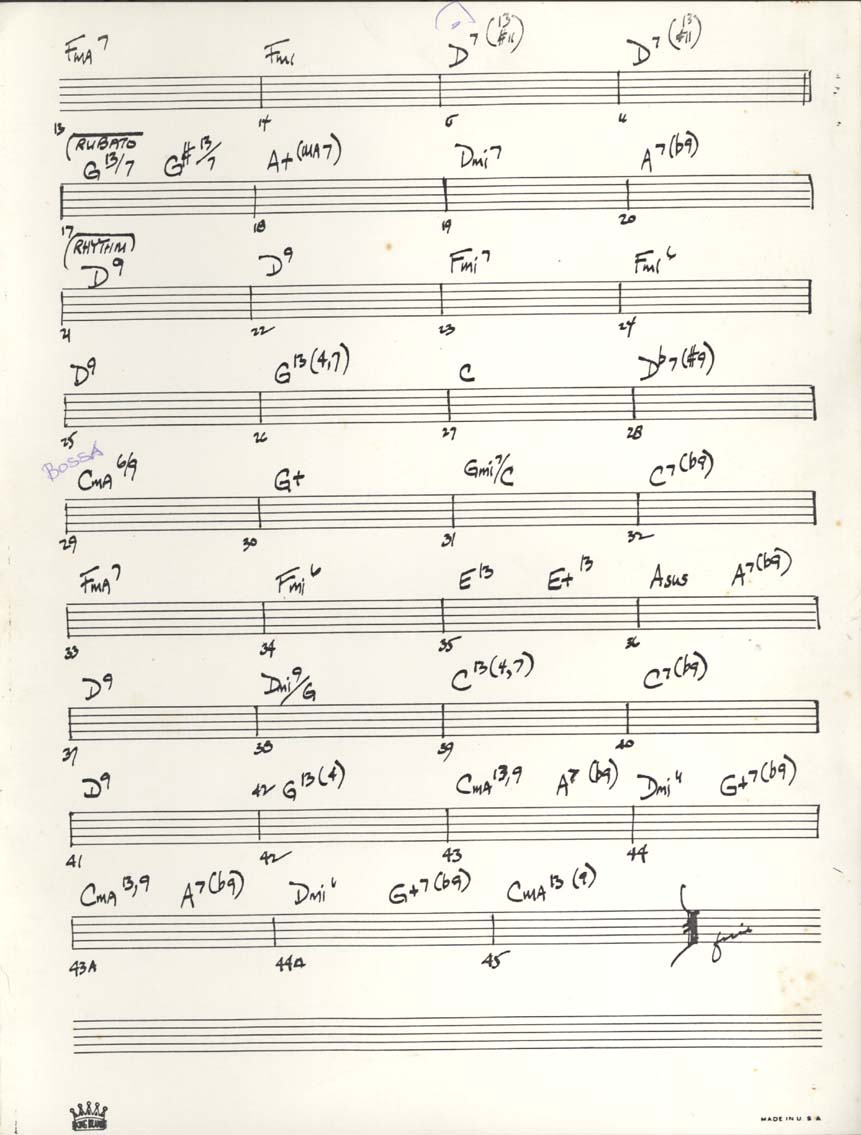 FMA7 FMI D7(13 #11) D7(13 #11)
13 14 15 16
(RUBATO
G13/7 G#13/7 A+(MA7) DMI7 A7(b9)
17 18 19 20
(RHYTHM)
D9 D9 FMI7 FMI6
21 22 23 24
D9 G13(4,7) C Db7(#9)
25 26 27 28
BOSSA
CMA6/9 G+ GMI7/C C7(b9)
29 30 31 32
FMA7 FMI6 E13 E+13 ASUS A7(b9)
33 34 35 36
D9 DMI9/G C13(4,7) C7(b9)
37 38 39 40
D9 42 G13(4) CMA13,9 A7(b9) DMI6 G+7(b9)
41 42 43 44
CMA13,9 A7(b9) DMI6 G+7(b9) CMA13(9)
43A 44A 45
fine
KING BRAND
MADE IN U S A